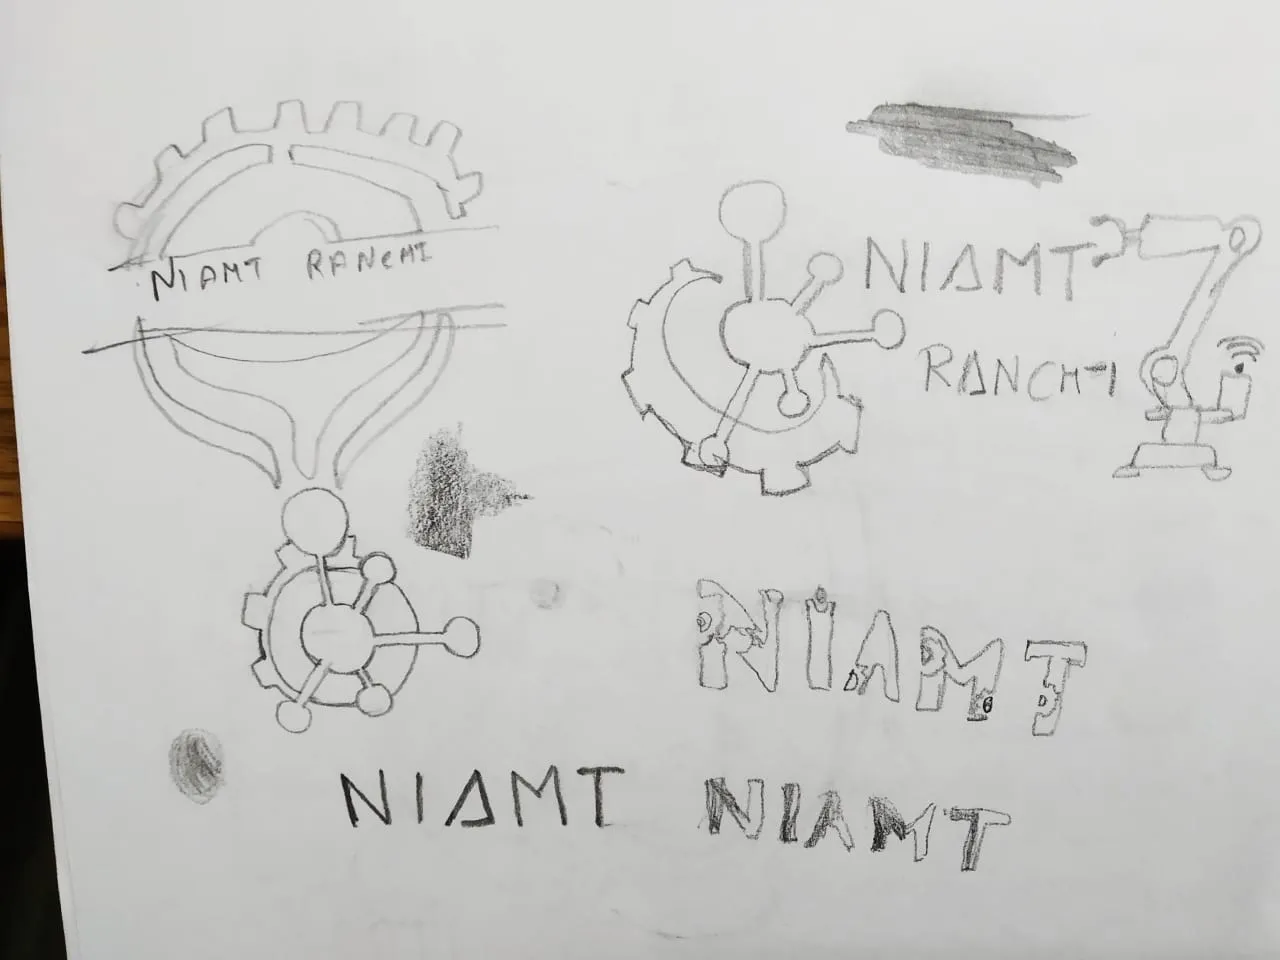 NIAMT RANCHI
NIAMT
RANCHI
NIAMT
NIAMT
NIAMT